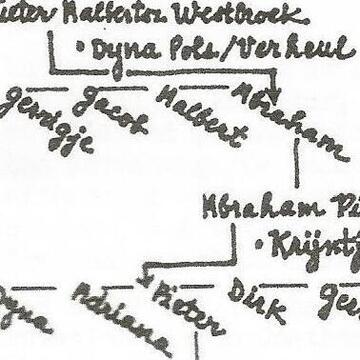 Pieter Halbertsz Westbroek
• Dyna Pols/Verheul
Gerrigje Jacob Halbert Abraham
Abraham Pi
• Krijntj
Dyna Adriana Pieter Dirk Ger